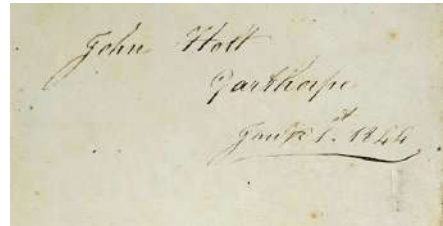 John Holt
Garthorpe
Jany 1st 1844